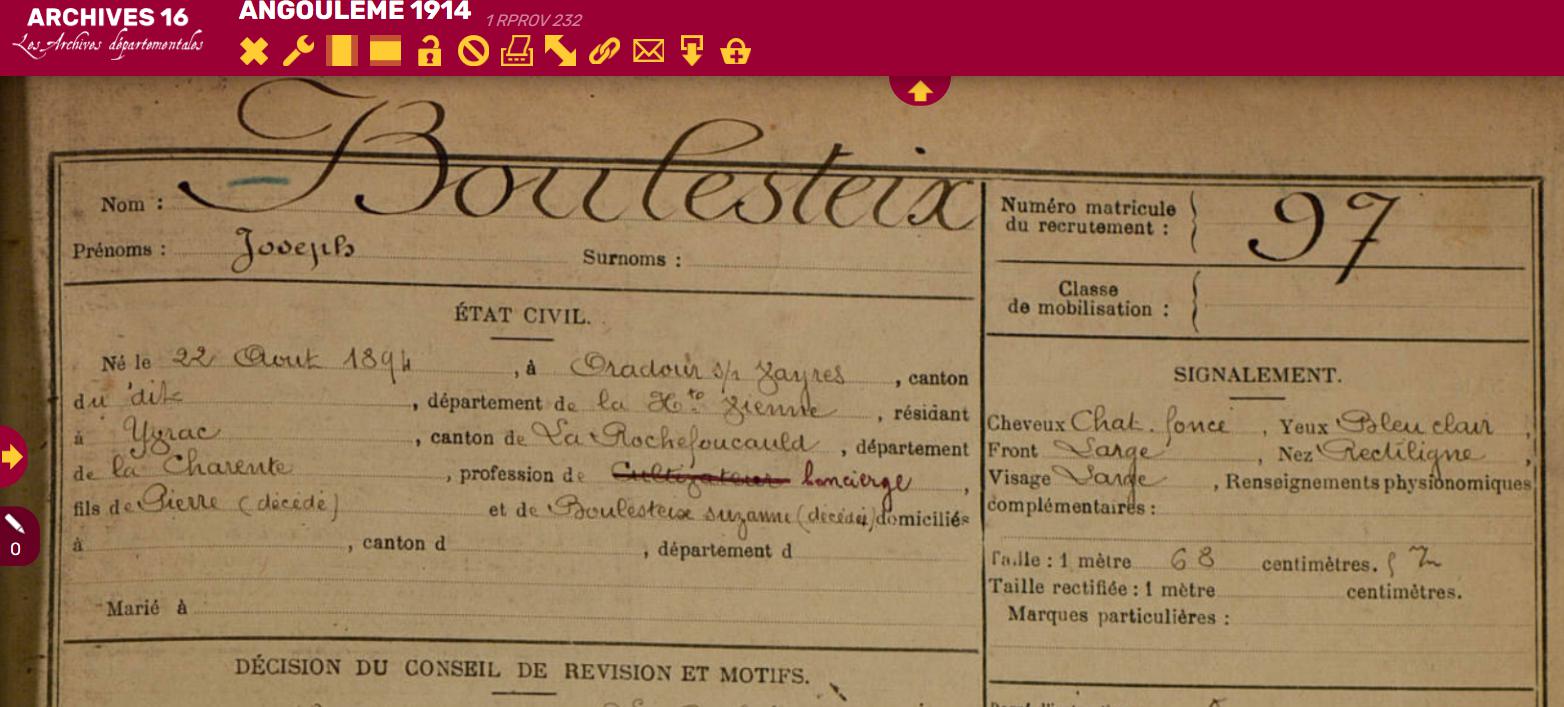 ARCHIVES 16
Les Archives départementales
ANGOULEME 1914 1 RPROV 232
Nom : Boulesteix
Prénoms : Joseph Surnoms :
ÉTAT CIVIL.
Né le 22 Aout 1894, à Oradour s/r Vayres, canton
du dit, département de la Hte Vienne, résidant
à Yvrac, canton de La Rochefoucauld, département
de la Charente, profession de Cultivateur Concierge,
fils de Pierre (décédé) et de Boulesteix suzanne (décédée) domiciliés
à , canton d , département d
Marié à
DÉCISION DU CONSEIL DE REVISION ET MOTIFS.
Numéro matricule
du recrutement : 97
Classe
de mobilisation :
SIGNALEMENT.
Cheveux Chat. foncé, Yeux Bleu clair,
Front Large, Nez Rectiligne,
Visage Large, Renseignements physionomiques
complémentaires :
Taille : 1 mètre 68 centimètres.
Taille rectifiée : 1 mètre centimètres.
Marques particulières :
0